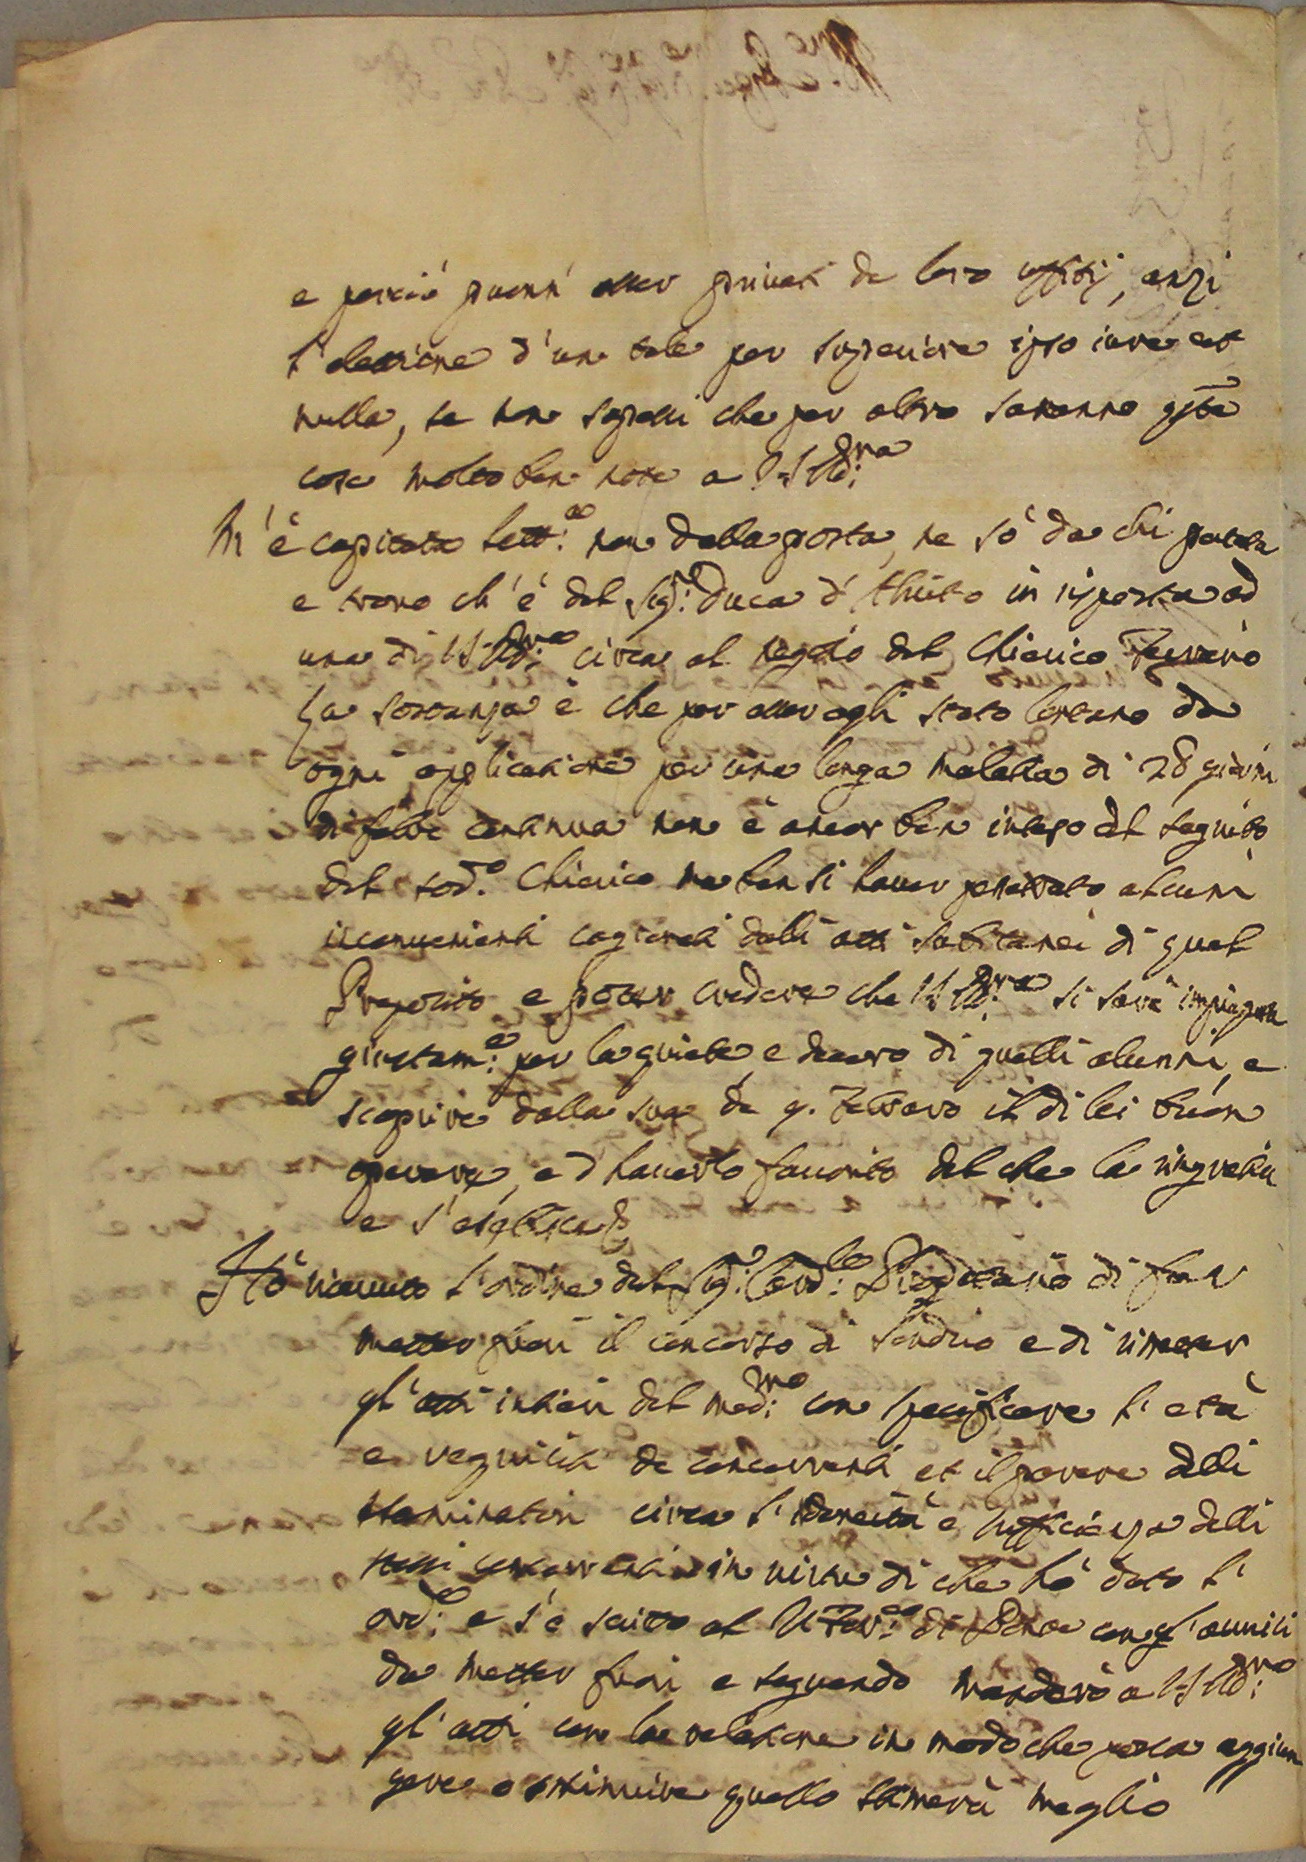 e perciò ponno esser privati de loro uffitij, anzi
l'elettione d'un tale per superiore ipso iure est
nulla, se non sapessi che per altro saranno qste
cose molto ben note a V.S. Ill.ma
M'è capitata lett.a non dalla posta, ne sò da chi portata
e trovo ch'è del Sig.r Duca d'Alvito in risposta ad
una di V.S. Ill.ma circa al negotio del Chierico Ferrario
La sostanza è che per esser egli stato lontano da
ogni applicatione per una longa malatia di 28 giorni
di febre continua non è ancor ben inteso del seguito
del sod.o Chierico ma bensi haver penetrato alcuni
inconvenienti cagionati dalli atti subitanei di quel
Preposito e poter credere che V.S. Ill.ma si sarà impiegata
giustam.e per la quiete, e decoro di quelli alunni, e
scoprire dalla sua de 9. Febraro il di lei buon
operare, e d'haverlo favorito del che la ringratia
e s'esebisce &
Hò ricevuto l'ordine del Sig.r Card.le di far
metter fuori il concorso di Sondrio e di rimetter
gl'atti intieri del med.mo con specificare l'età
e requisiti de concorrenti et il parere delli
esaminatori circa l'idoneità e sufficienza delli
stessi concorrenti in virtu di che hò dato l'
ord.e e s'è scritto al V. For.eo di con gl'avvisi
da metter fuori e seguendo manderò a V.S. Ill.ma
gl'atti con la relatione in modo che possa aggiun
gere o sminuire quello stimerà meglio